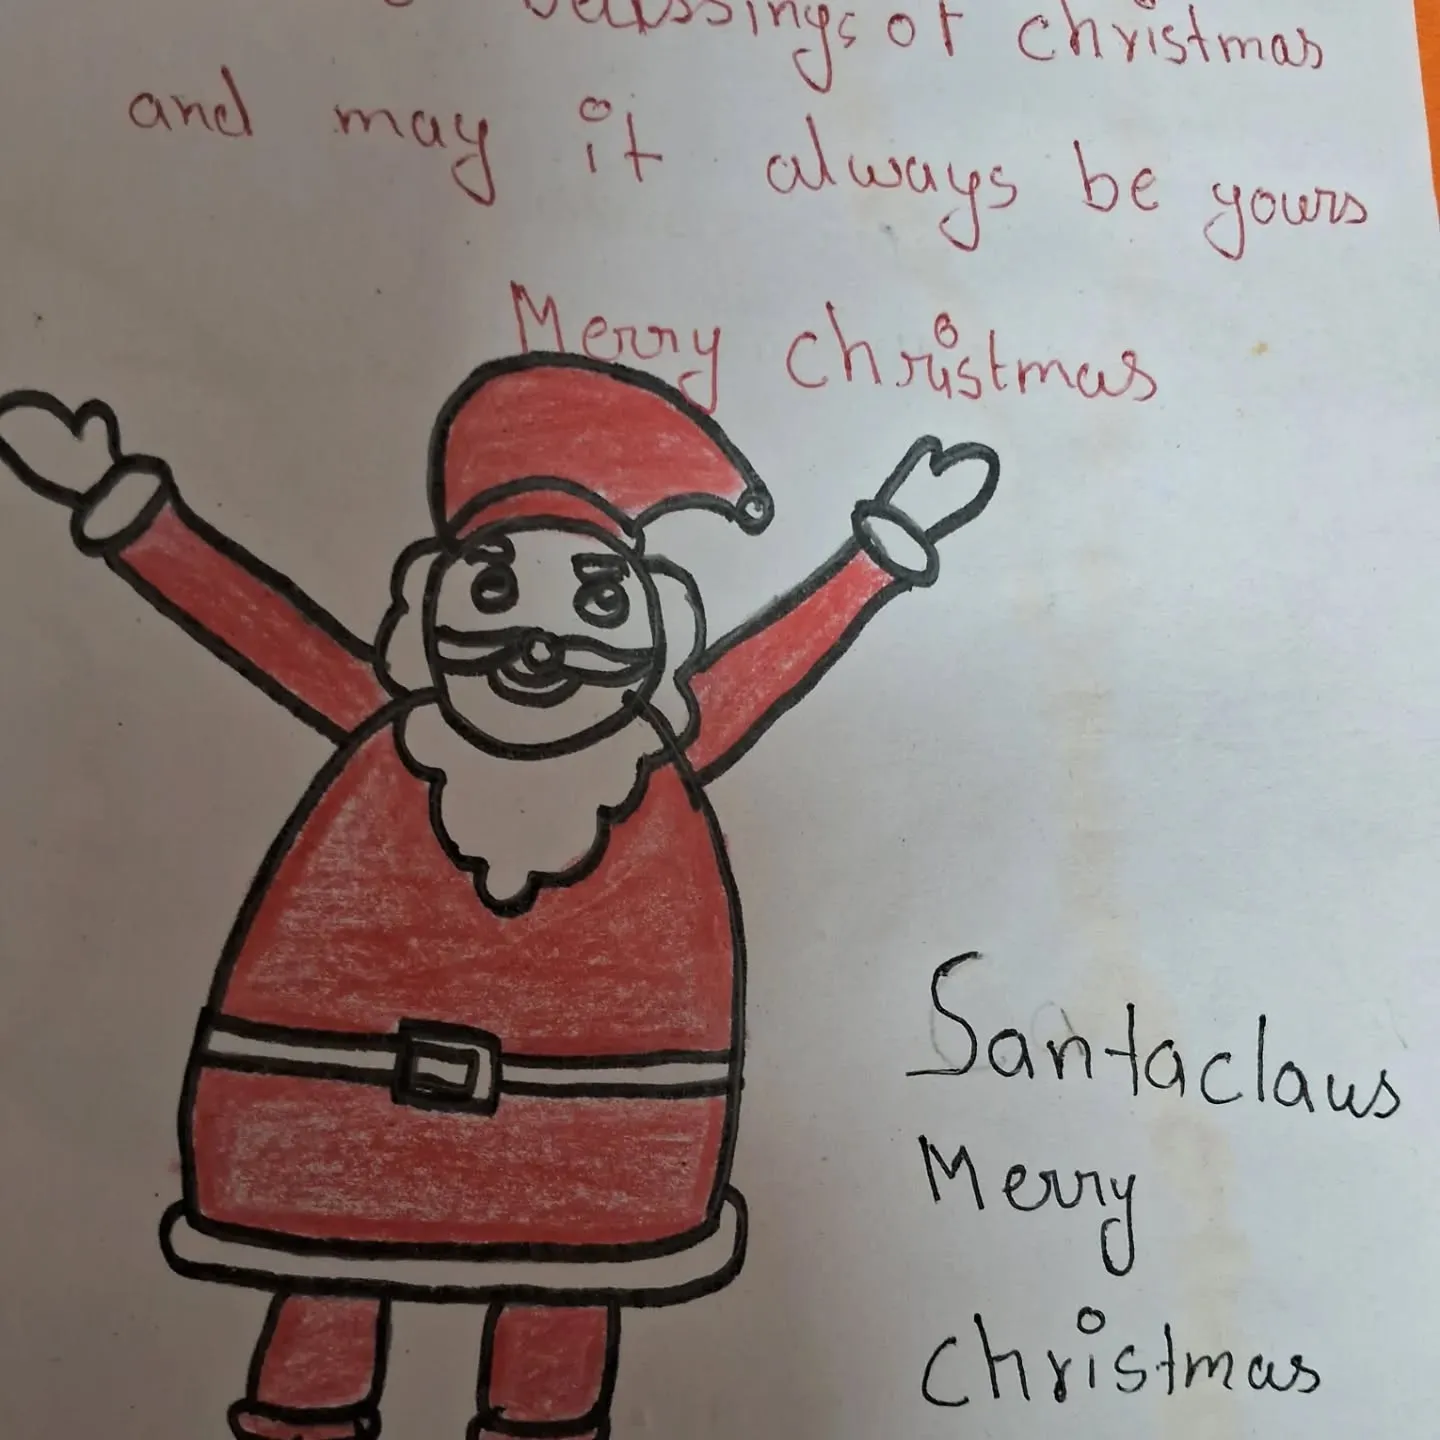 of christmas
and may it always be yours
Merry christmas
Santaclaus
Merry
christmas